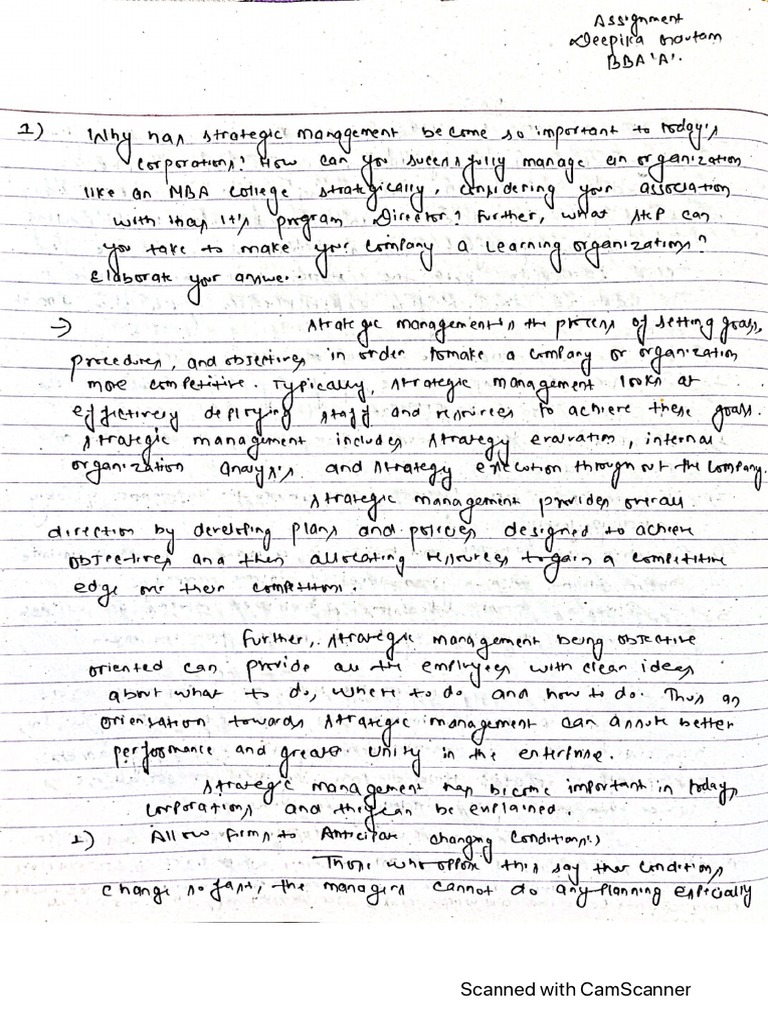 Assignment
Deepika Gautam
BBA 'A'.
1) Why has strategic management become so important to today's
corporations? How can you successfully manage an organization
like an MBA college strategically, considering your association
with
it's program Director? Further, what step can
you take to make your company a Learning organizations?
Elaborate your answer.
→ strategic management is the process of setting goals,
procedures, and objectives in order to make a company or organization
more competitive. Typically, strategic management looks at
effectively deploying staff and resources to achieve these goals.
strategic management includes strategy evaluation, internal
organization analysis and strategy execution throughout the company.
strategic management provides overall
direction by developing plans and policies designed to achieve
objectives and then allocating resources to gain a competitive
edge over their competitions.
Further, strategic management being objective
oriented can provide all the employees with clean ideas
about what to do, where to do and how to do. Thus an
orientation towards strategic management can assure better
performance and greater unity in the enterprise.
strategic management has become important in todays
corporations and they can be explained.
1) Allow firms to Anticipate changing conditions:)
Those who oppose this say that conditions
change so fast, the managers cannot do any planning especially
Scanned with CamScanner